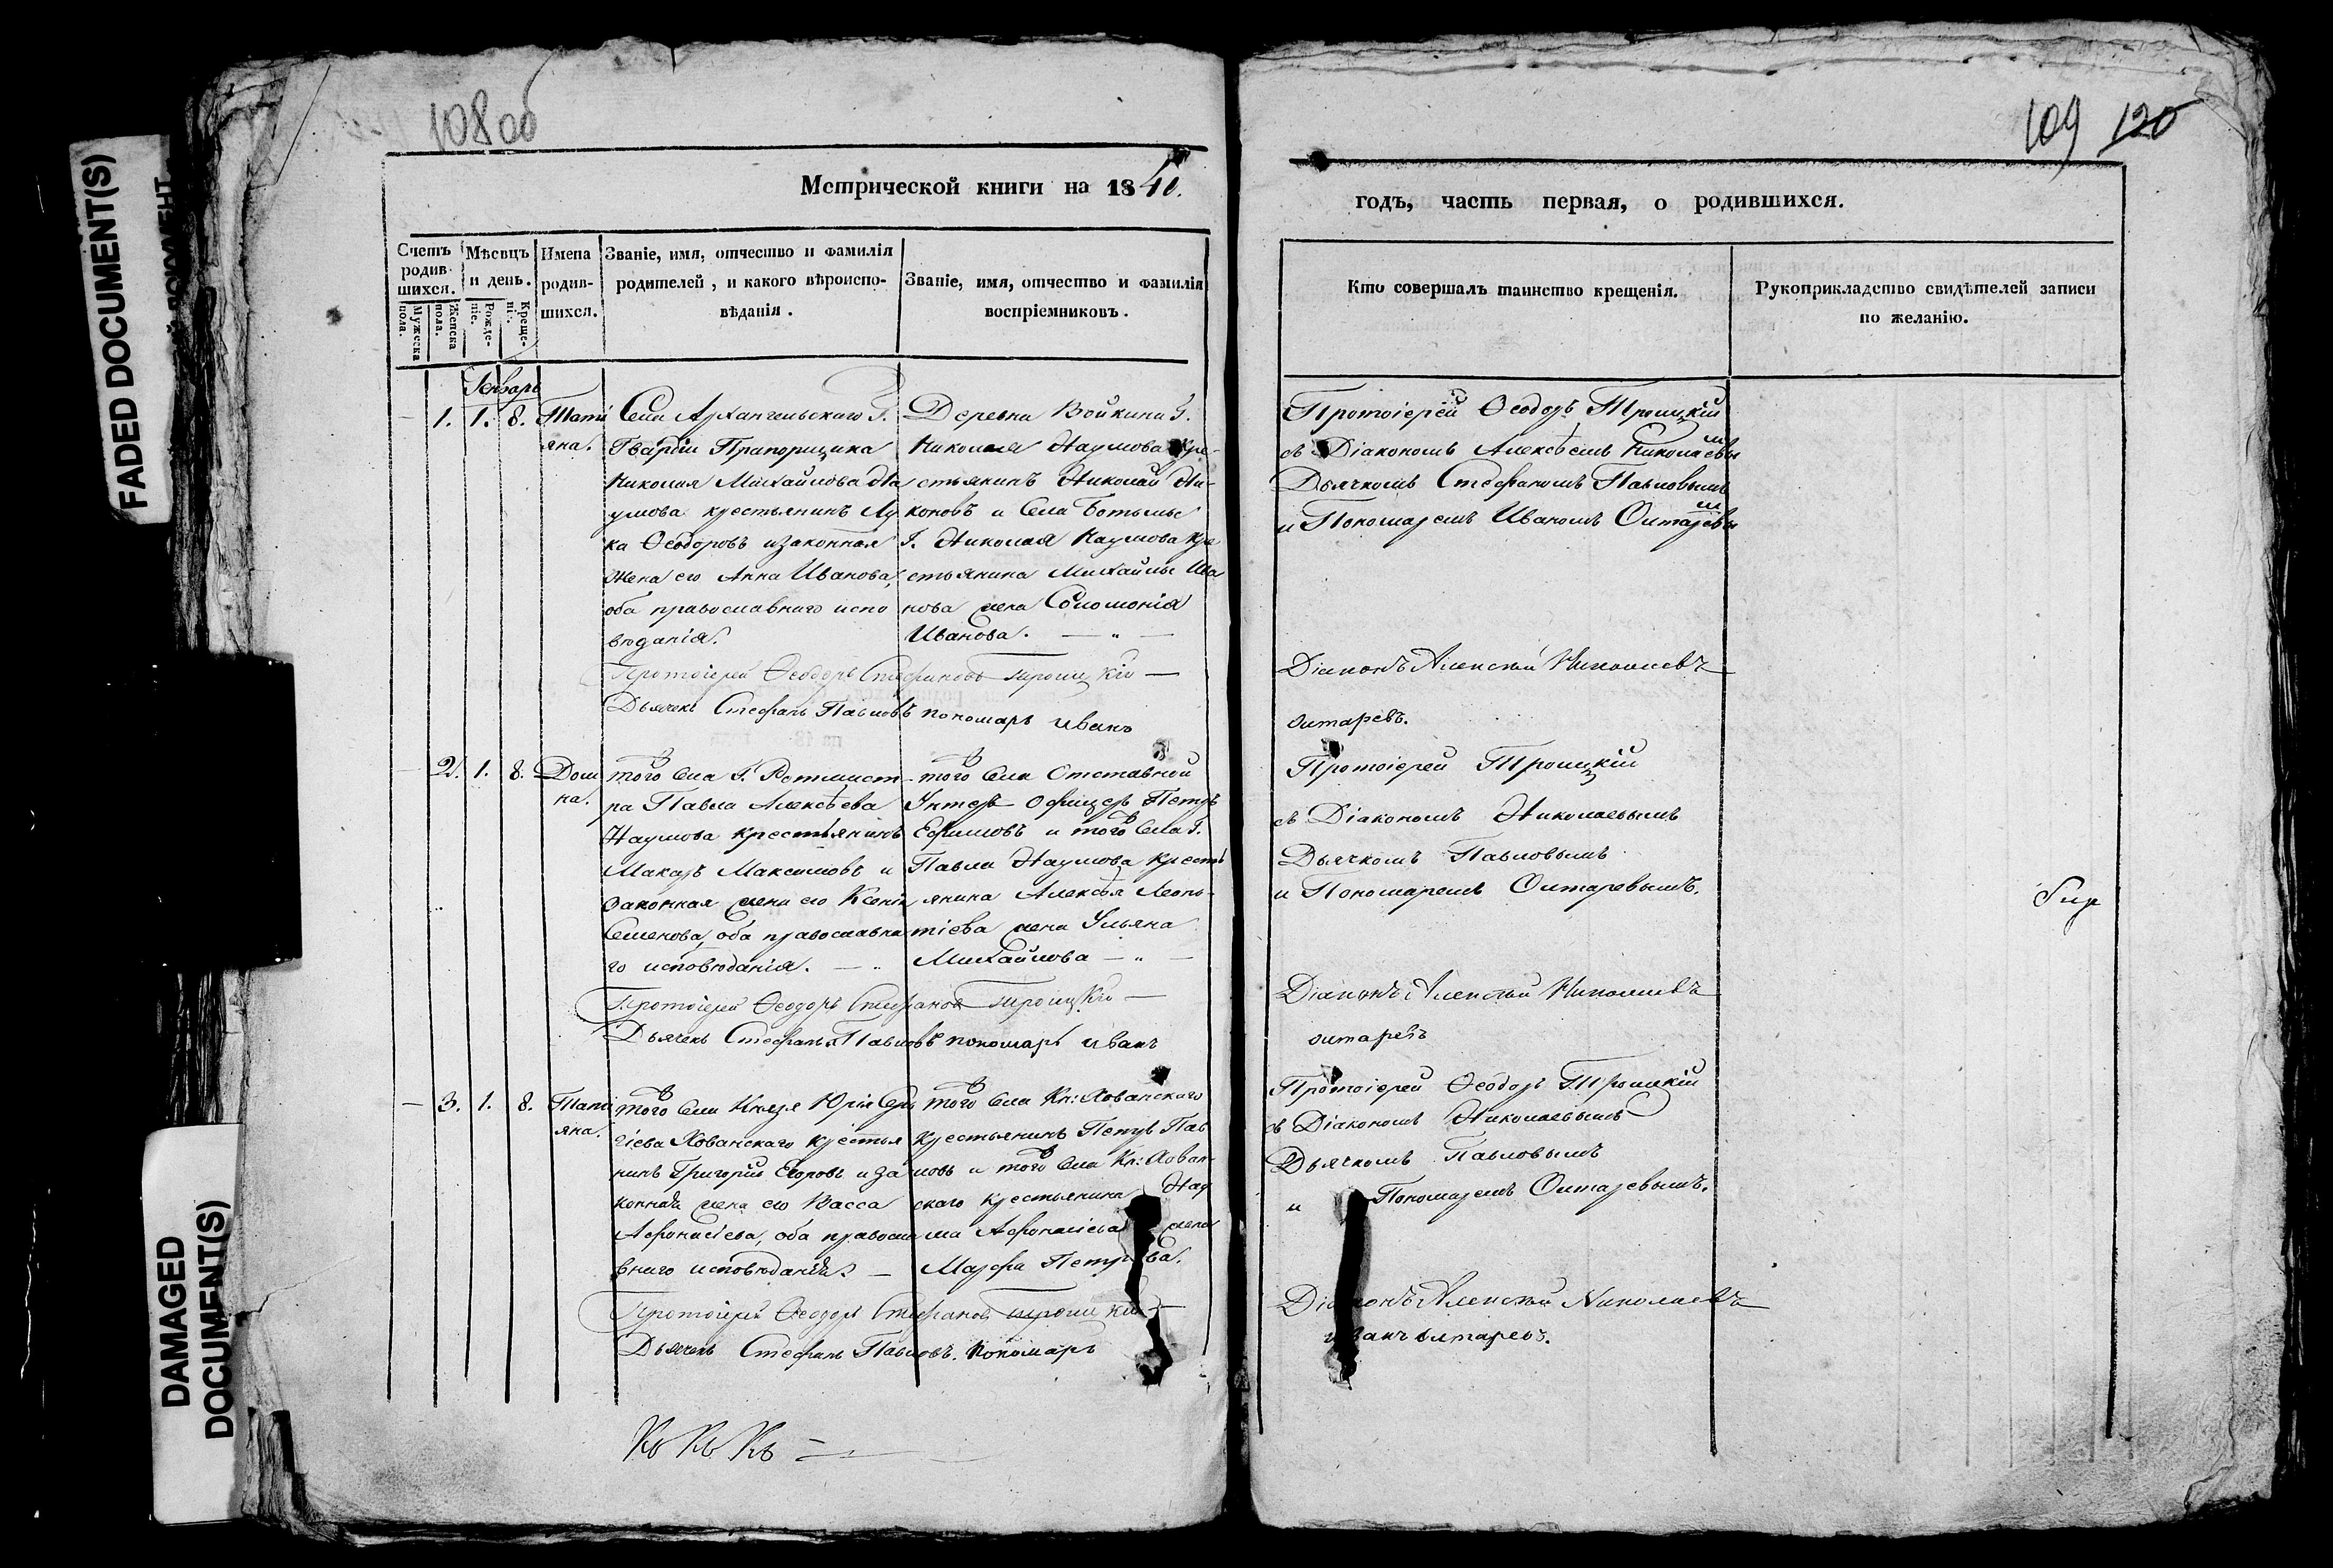 FADED DOCUMENT(S)
DAMAGED
DOCUMENT(S)
108 об
Метрической книги на 1840.
Счетъ родив-шихся.
Мужеска пола.
Женска пола.
Мѣсяцъ и день.
Рожде-ніе.
Креще-ніе.
Имена родив-шихся.
Званіе, имя, отчество и фамилія
родителей, и какого вѣроиспо-
вѣданія.
Званіе, имя, отчество и фамилія
воспріемниковъ.
Генварь
1. 1. 8.
Тати
яна.
Села Архангельскаго Г.
Гвардіи Прапорщика
Николая Михайлова На
умова крестьянинъ Лу
ка Ѳеодоровъ и законная
жена его Анна Иванова,
оба православнаго испо
вѣданія.
Деревни Войкина Г.
Николая Наумова кре-
стьянинъ Николай Ни-
коновъ и Села Ботьмы
Г. Николая Наумова кре
стьянина Михайлы Ива
нова жена Соломонія
Иванова.
Протоіерей Ѳеодоръ Стефановъ Троицкій
Дьячекъ Стефанъ Павловъ пономарь иванъ
2. 1. 8.
Дом
на.
того Села Г. Ротмист-
ра Павла Алексѣева
Наумова крестьянинъ
Макаръ Максимовъ и
законная жена его Ксенія
Семенова, оба православна
го исповѣданія.
того Села Отставной
Унтеръ-Офицеръ Петръ
Ефимовъ и того Села Г.
Павла Наумова кресть
янина Алексѣя Леонь-
тіева жена Ульяна
Михайлова
Протоіерей Ѳеодоръ Стефановъ Троицкій
Дьячекъ Стефанъ Павловъ пономарь иванъ
3. 1. 8.
Тати
яна.
того Села Князя Юрія Сер
гіева Хованскаго крестья
нинъ Григорій Егоровъ и за
конная жена его Васса
Афонасіева, оба правосла
внаго исповѣданія.
того Села Кн: Хованскаго
крестьянинъ Петръ Пав
ловъ и того Села Кн: Хован-
скаго крестьянина
Афонасіева жена
Марфа Петрова.
Протоіерей Ѳеодоръ Стефановъ Троицкій
Дьячекъ Стефанъ Павловъ. Пономарь
109 120
годъ, часть первая, о родившихся.
Кто совершалъ таинство крещенія.
Рукоприкладство свидѣтелей записи
по желанію.
Протоіерей Ѳеодоръ Троицкій
съ Діакономъ Алексѣемъ Николаевымъ
Дьячкомъ Стефаномъ Павловымъ
и Пономаремъ Иваномъ Олтаревымъ
Діаконъ Алексѣй Николаевъ
олтаревъ.
Протоіерей Троицкій
съ Діакономъ Николаевымъ
Дьячкомъ Павловымъ
и Пономаремъ Олтаревымъ.
Діаконъ Алексѣй Николаевъ
олтаревъ
Протоіерей Ѳеодоръ Троицкій
съ Діакономъ Николаевымъ
Дьячкомъ Павловымъ
и Пономаремъ Олтаревымъ.
Діаконъ Алексѣй Николаевъ
иванъ олтаревъ.